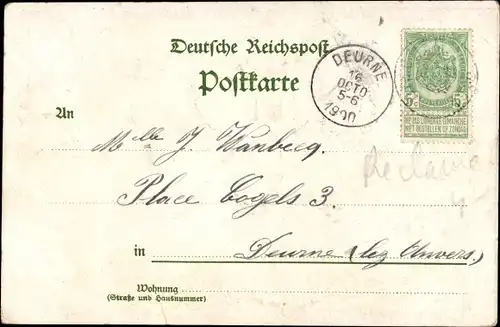 Deutsche Reichspost
Postkarte
DEURNE
16
OCTO
5-6
1900
5
5
NE PAS LIVRER LE DIMANCHE
NIET BESTELLEN OP ZONDAG
An
Melle J. Wanbecq
Place Cogels 3.
Reclame
in
Deurne (lez Anvers.)
Wohnung
(Straße und Hausnummer)